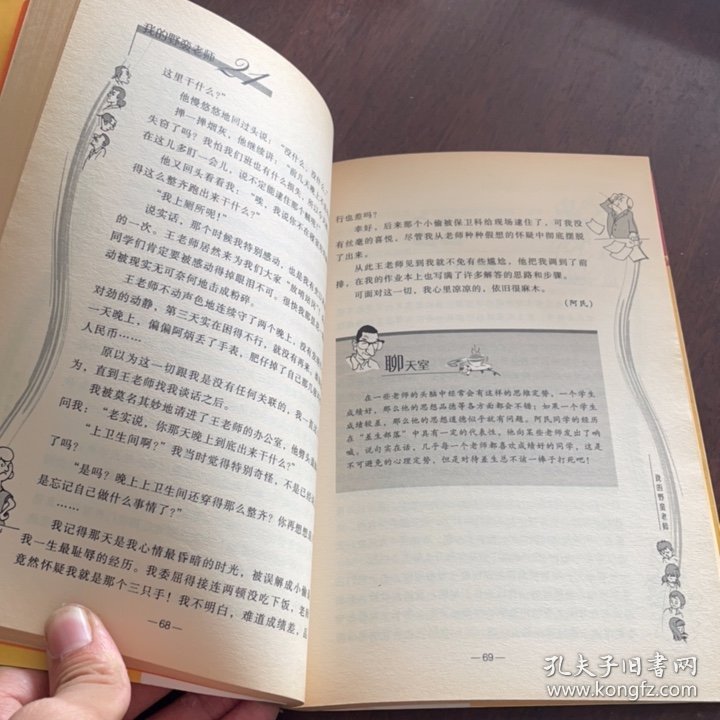 我的野蛮老师
21
这里干什么?”
他慢悠悠地回过头说:“没什么,没什么。”
掸一掸烟灰,他继续讲:“前几天晚上
失窃了吗?我怕我们班也有什么损失,所以
在这儿多盯一会儿,说不定能逮住那个贼呢!”
他又回头看看我:“唉,我说你
得这么整齐跑出来干什么?”
“我上厕所呢!”
说实话,那个时候我特别感动,也是我有
的一次。王老师居然来为我们大家
同学们肯定要被感动得掉眼泪不可。很快我那
动被现实无可奈何地击成粉碎。
王老师不动声色地连续守了两个晚上,没有
对劲的动静,第三天实在困得不行,就没有再来
一天晚上,偏偏阿烟丢了手表,肥仔掉了自己
人民币……
原以为这一切跟我是没有任何关联的,我一
为,直到王老师找我谈话之后。
我被莫名其妙地请进了王老师的办公室,他劈头
问我:“老实说,你那天晚上到底出来干什么?”
“上卫生间啊?”我当时觉得特别奇怪,不是已经
了吗?
“是吗?晚上上卫生间还穿得那么整齐?你再想想
是忘记自己做什么事情了?”
……
我记得那天是我心情最昏暗的时光,被误解成小偷
我一生最耻辱的经历。我委屈得接连两顿没吃下饭,老
竟然怀疑我就是那个三只手!我不明白,难道成绩差,品
—68—
行也差吗?
幸好,后来那个小偷被保卫科给现场逮住了,可我没
有丝毫的喜悦,尽管我从老师种种假想的怀疑中彻底摆脱
了出来。
从此王老师见到我就不免有些尴尬,他把我调到了前
排,在我的作业本上也写满了许多解答的思路和步骤。
可面对这一切,我心里凉凉的,依旧很麻木。
(阿民)
聊天室
在一些老师的头脑中经常会有这样的思维定势,一个学生
成绩好,那么他的思想品德等各方面都会不错;如果一个学生
成绩较差,那么他的思想道德似乎就有问题。阿民同学的经历
在“差生部落”中具有一定的代表性,他向某些老师发出了呐
喊。说句实在话,几乎每一个老师都喜欢成绩好的同学,这是
不可避免的心理定势,但是对待差生总不该一棒子打死吧!
我的野蛮老师
—69—
孔夫子旧书网
www.kongfz.com